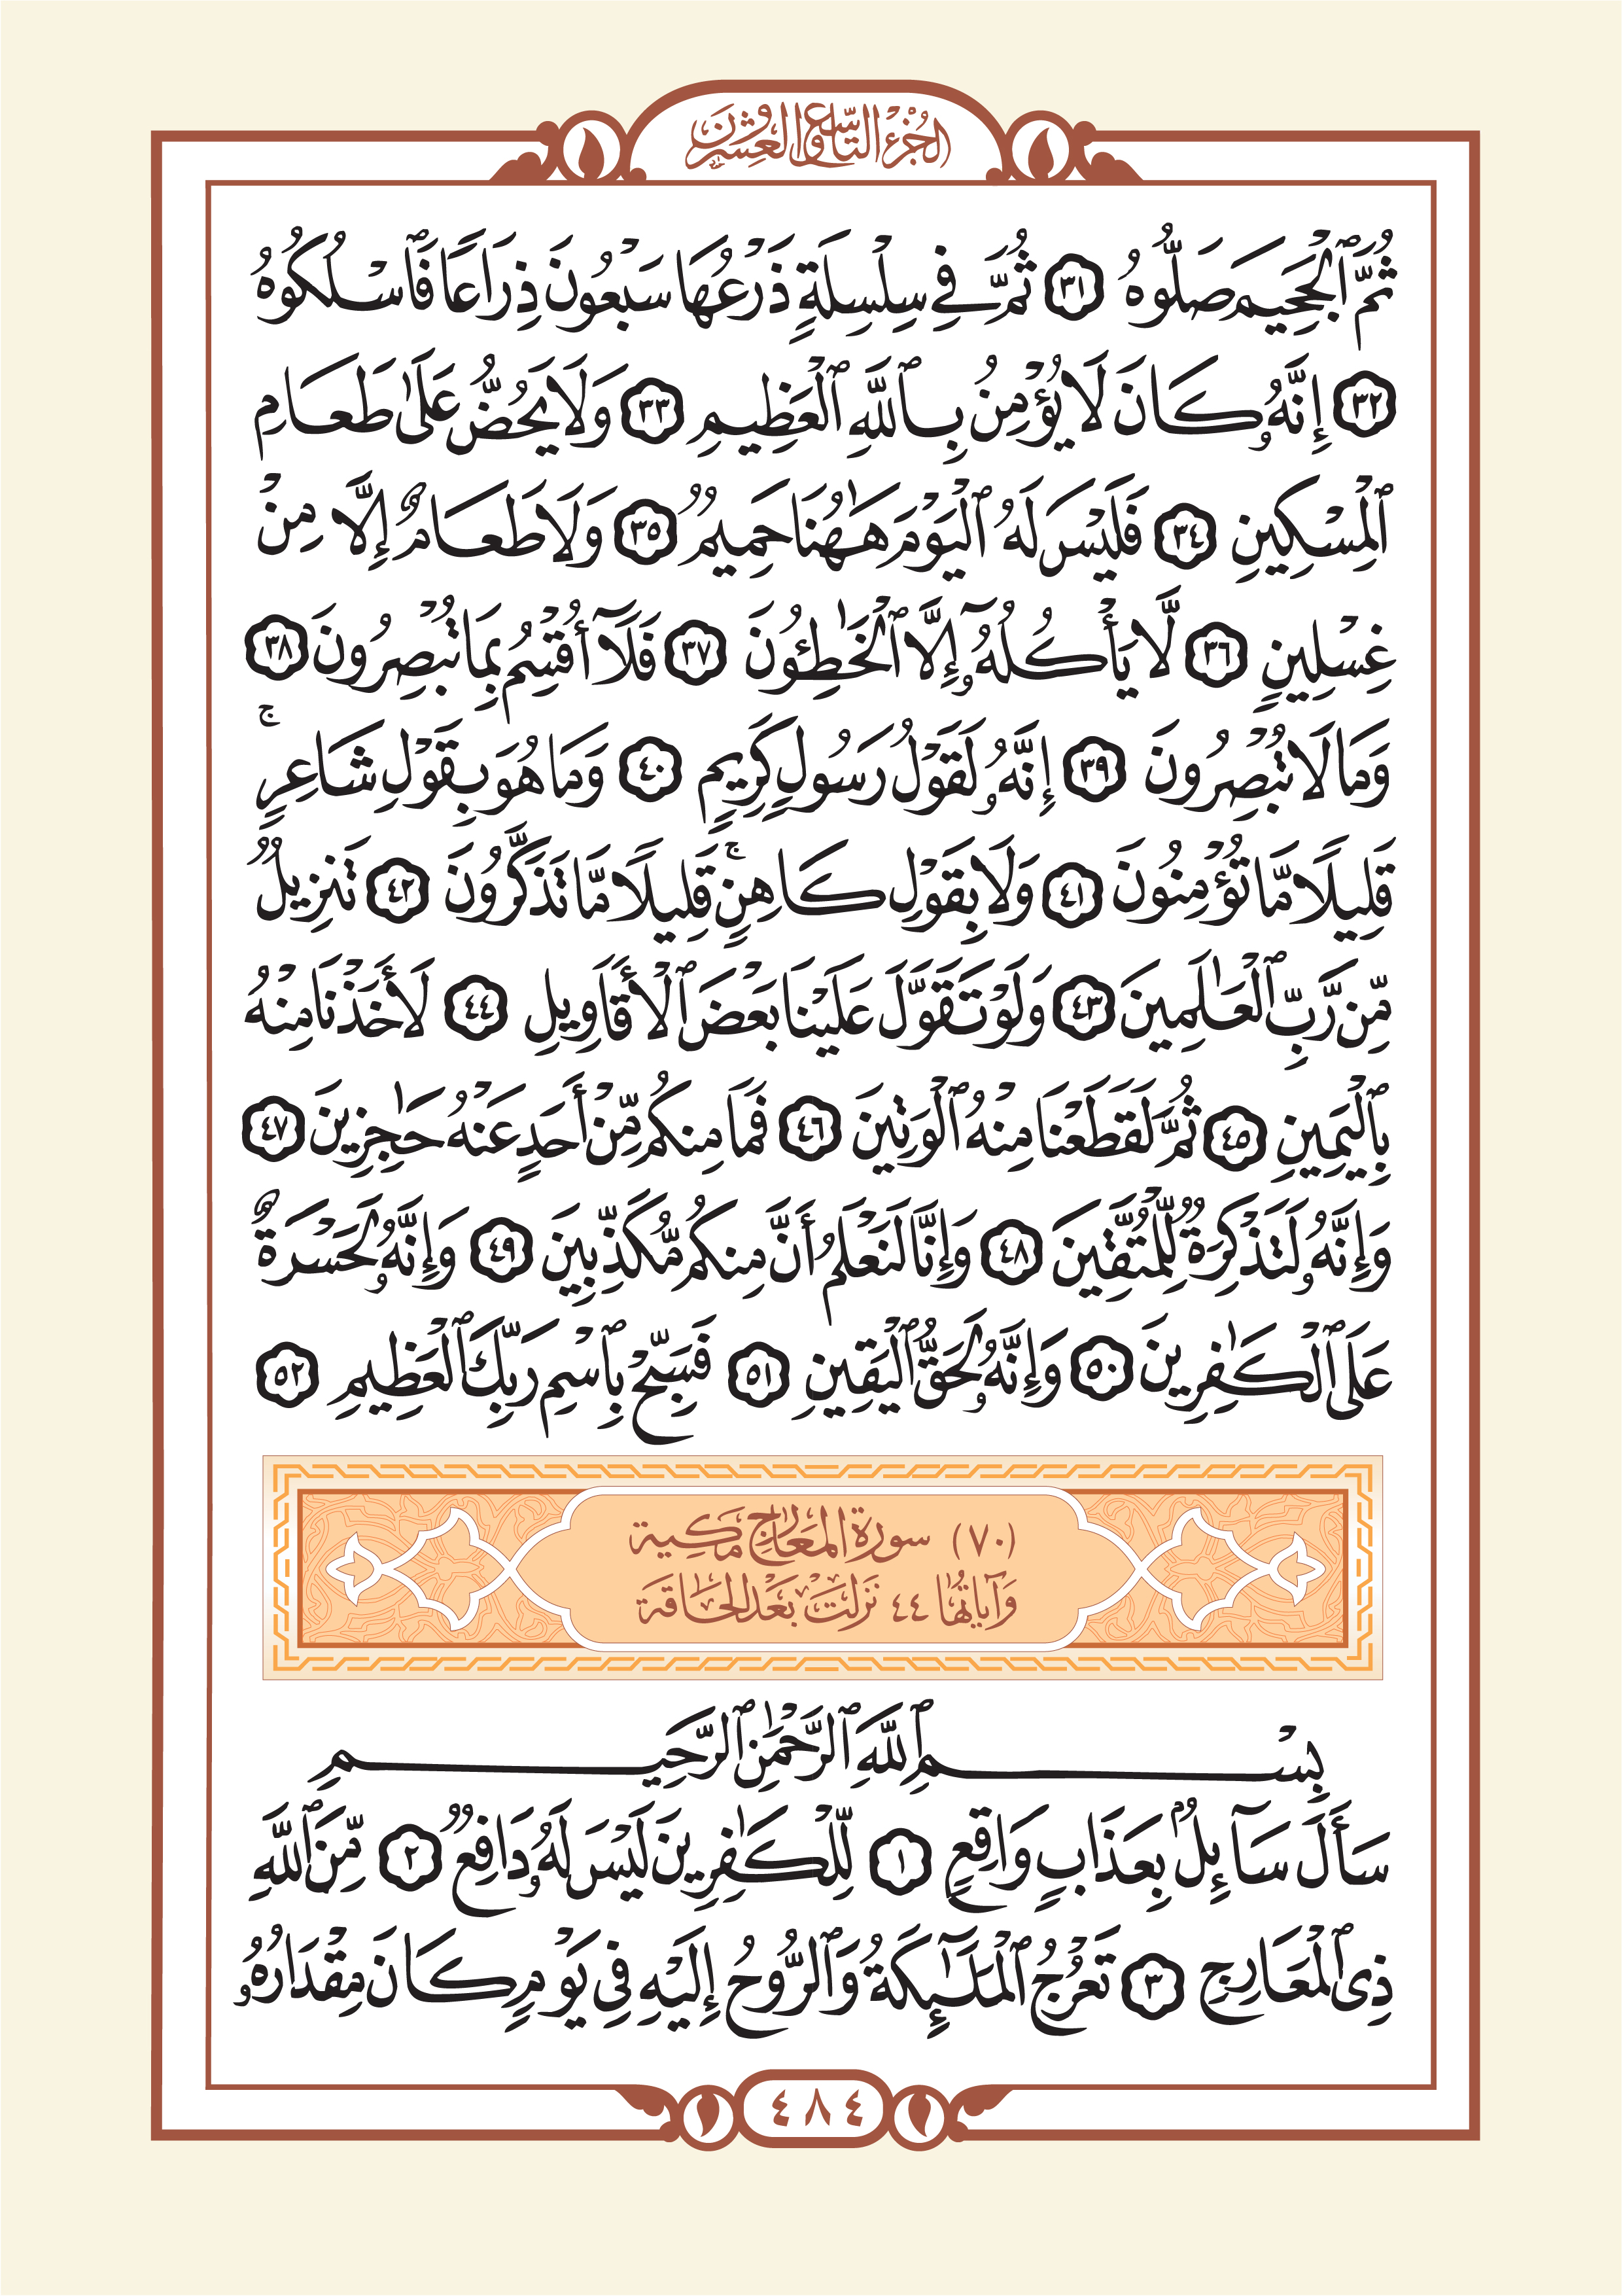 الجُزْءُ التَّاسِعُ وَالعِشْرُونَ
ثُمَّ ٱلْجَحِيمَ صَلُّوهُ ٣١ ثُمَّ فِي سِلْسِلَةٍ ذَرْعُهَا سَبْعُونَ ذِرَاعًا فَٱسْلُكُوهُ
٣٢ إِنَّهُۥ كَانَ لَا يُؤْمِنُ بِٱللَّهِ ٱلْعَظِيمِ ٣٣ وَلَا يَحُضُّ عَلَىٰ طَعَامِ
ٱلْمِسْكِينِ ٣٤ فَلَيْسَ لَهُ ٱلْيَوْمَ هَـٰهُنَا حَمِيمٌ ٣٥ وَلَا طَعَامٌ إِلَّا مِنْ
غِسْلِينٍ ٣٦ لَّا يَأْكُلُهُۥٓ إِلَّا ٱلْخَـٰطِـُٔونَ ٣٧ فَلَآ أُقْسِمُ بِمَا تُبْصِرُونَ ٣٨
وَمَا لَا تُبْصِرُونَ ٣٩ إِنَّهُۥ لَقَوْلُ رَسُولٍ كَرِيمٍ ٤٠ وَمَا هُوَ بِقَوْلِ شَاعِرٍ ۚ
قَلِيلًا مَّا تُؤْمِنُونَ ٤١ وَلَا بِقَوْلِ كَاهِنٍ ۚ قَلِيلًا مَّا تَذَكَّرُونَ ٤٢ تَنزِيلٌ
مِّن رَّبِّ ٱلْعَـٰلَمِينَ ٤٣ وَلَوْ تَقَوَّلَ عَلَيْنَا بَعْضَ ٱلْأَقَاوِيلِ ٤٤ لَأَخَذْنَا مِنْهُ
بِٱلْيَمِينِ ٤٥ ثُمَّ لَقَطَعْنَا مِنْهُ ٱلْوَتِينَ ٤٦ فَمَا مِنكُم مِّنْ أَحَدٍ عَنْهُ حَـٰجِزِينَ ٤٧
وَإِنَّهُۥ لَتَذْكِرَةٌ لِّلْمُتَّقِينَ ٤٨ وَإِنَّا لَنَعْلَمُ أَنَّ مِنكُم مُّكَذِّبِينَ ٤٩ وَإِنَّهُۥ لَحَسْرَةٌ
عَلَى ٱلْكَـٰفِرِينَ ٥٠ وَإِنَّهُۥ لَحَقُّ ٱلْيَقِينِ ٥١ فَسَبِّحْ بِٱسْمِ رَبِّكَ ٱلْعَظِيمِ ٥٢
(٧٠) سورة المعَارج مَكية
وَآياتُهَا ٤٤ نَزَلتْ بَعْدَ الحَاقة
بِسْمِ ٱللَّهِ ٱلرَّحْمَـٰنِ ٱلرَّحِيمِ
سَأَلَ سَآئِلٌۢ بِعَذَابٍ وَاقِعٍ ١ لِّلْكَـٰفِرِينَ لَيْسَ لَهُۥ دَافِعٌ ٢ مِّنَ ٱللَّهِ
ذِى ٱلْمَعَارِجِ ٣ تَعْرُجُ ٱلْمَلَـٰٓئِكَةُ وَٱلرُّوحُ إِلَيْهِ فِى يَوْمٍ كَانَ مِقْدَارُهُۥ
٤٨٤